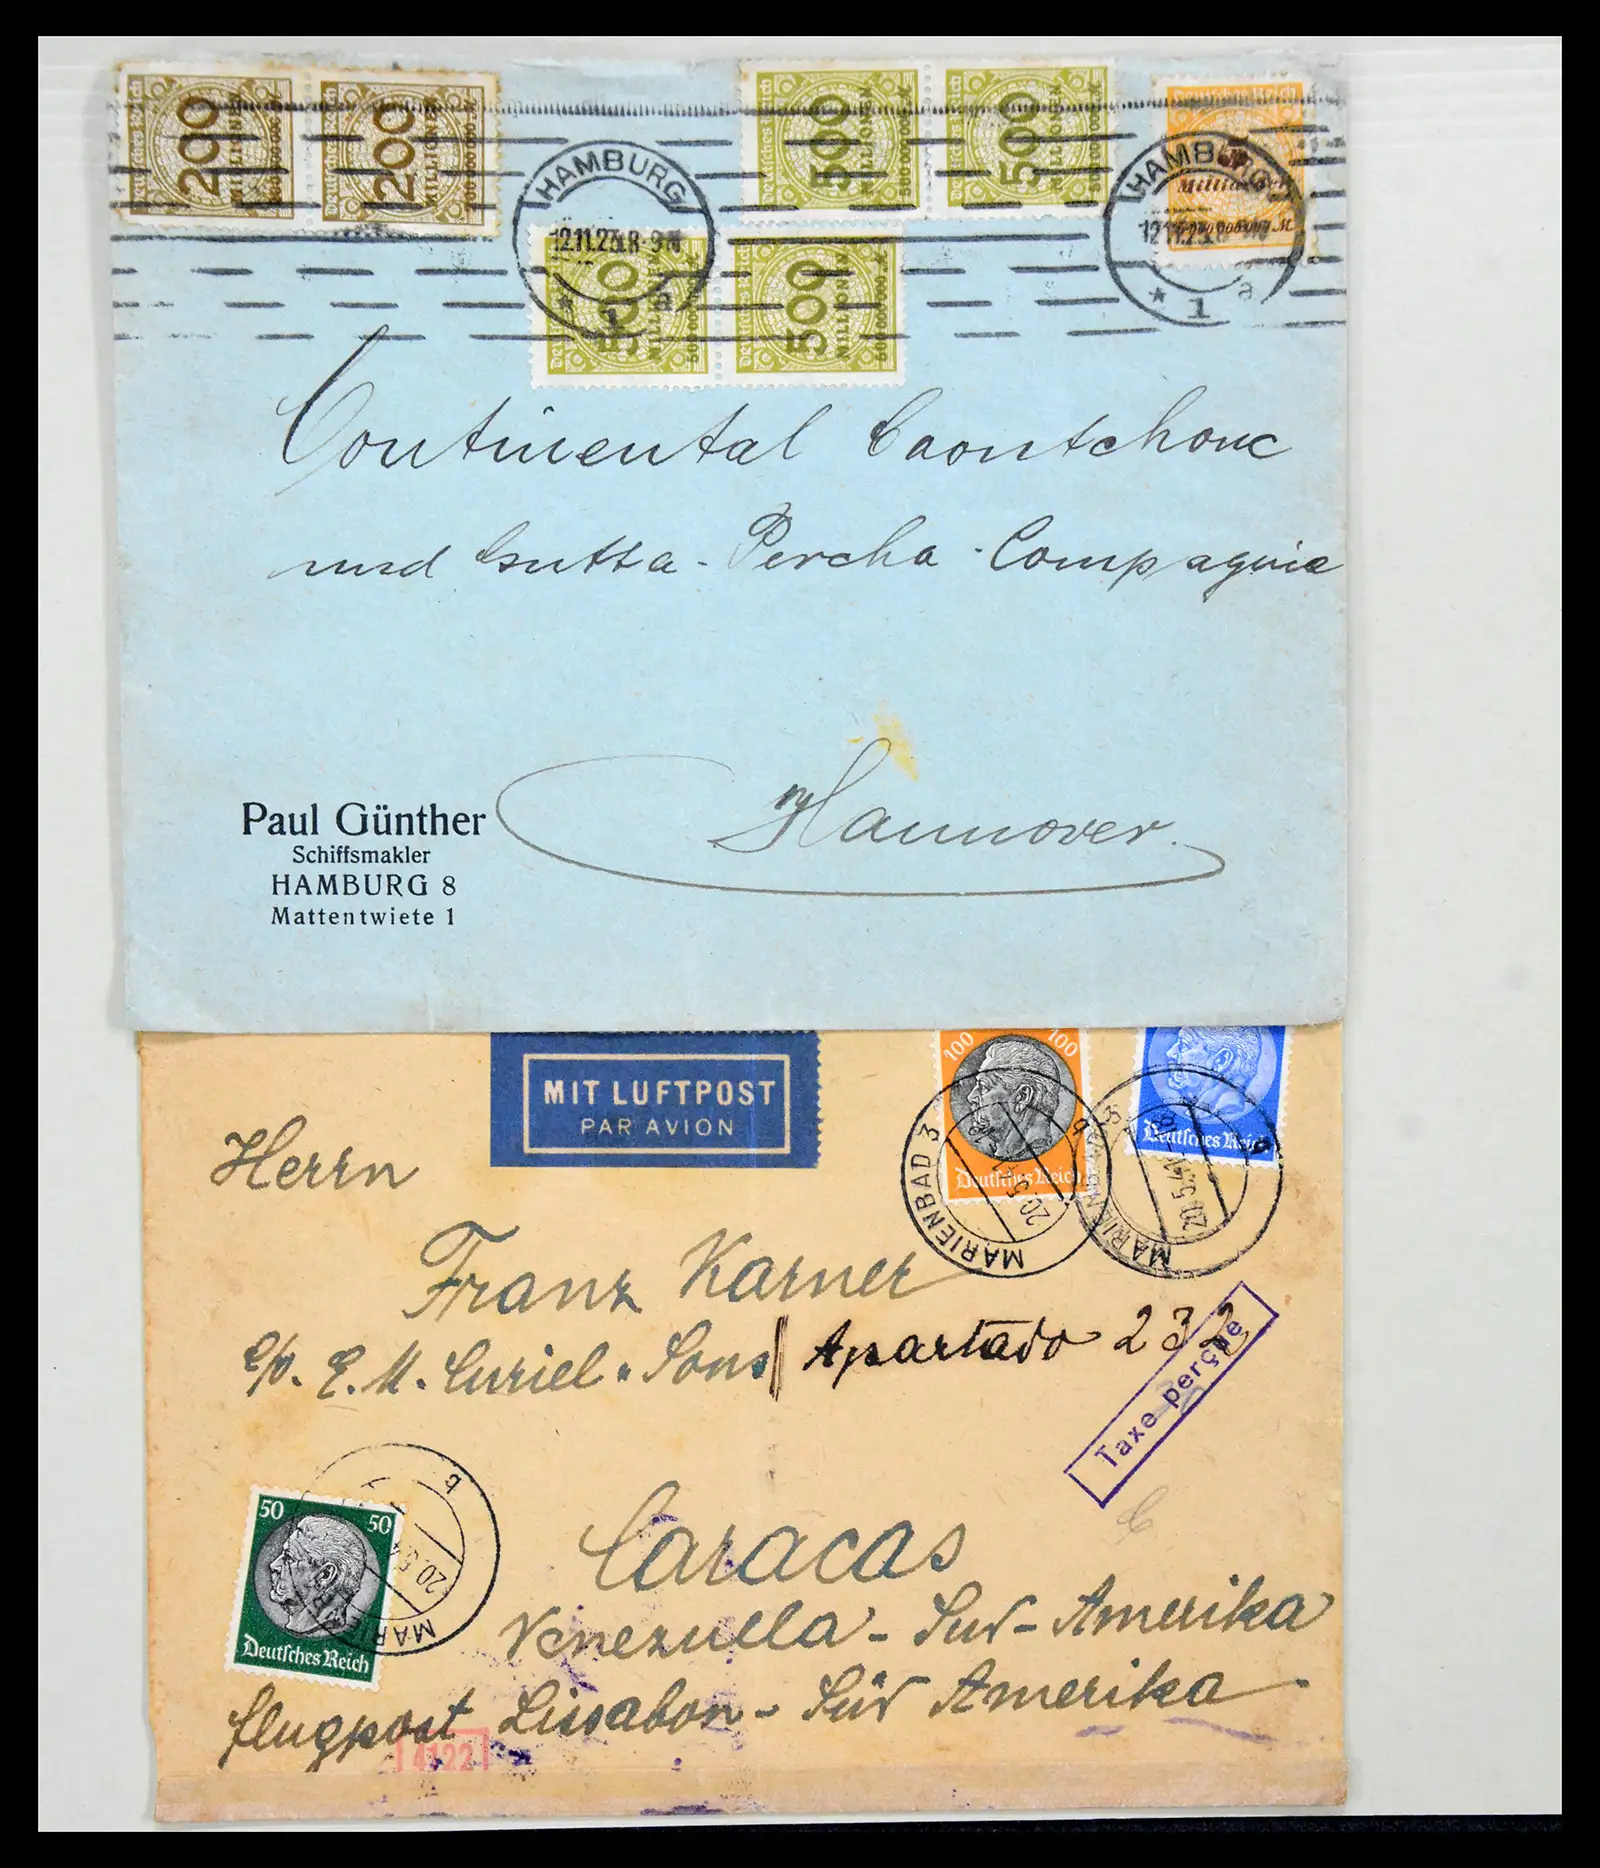 Deutsches Reich
200
MILLIONEN
Deutsches Reich
200
MILLIONEN
Deutsches Reich
500
MILLIONEN
Deutsches Reich
500
MILLIONEN
Deutsches Reich
HAMBURG
12.11.23.8-9N
* 1 a
HAMBURG
12.11.23.8-9N
* 1 a
MILLIONEN
Deutsches Reich
500
MILLIONEN
Continental Caoutchouc
und Gutta-Percha-Compagnie
Hannover.
Paul Günther
Schiffsmakler
HAMBURG 8
Mattentwiete 1
MIT LUFTPOST
PAR AVION
100 100
Deutsches Reich
Deutsches Reich
MARIENBAD 3
20.5.41
b
MARIENBAD 3
20.5.41-18
b
Herrn
Franz Karner
c/o. E. M. Curiel & Sons / Apartado 232
Taxe perçue
Caracas
Venezuella - Süd-Amerika
flugpost Lissabon - Süd Amerika
50 50
Deutsches Reich
20.5.41
b
4122